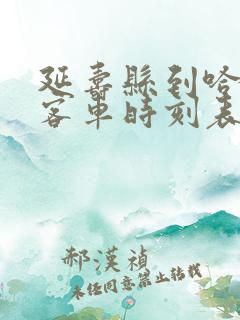 延壽縣到哈
客車時刻表
郝漢禎
未經同意禁止轉載